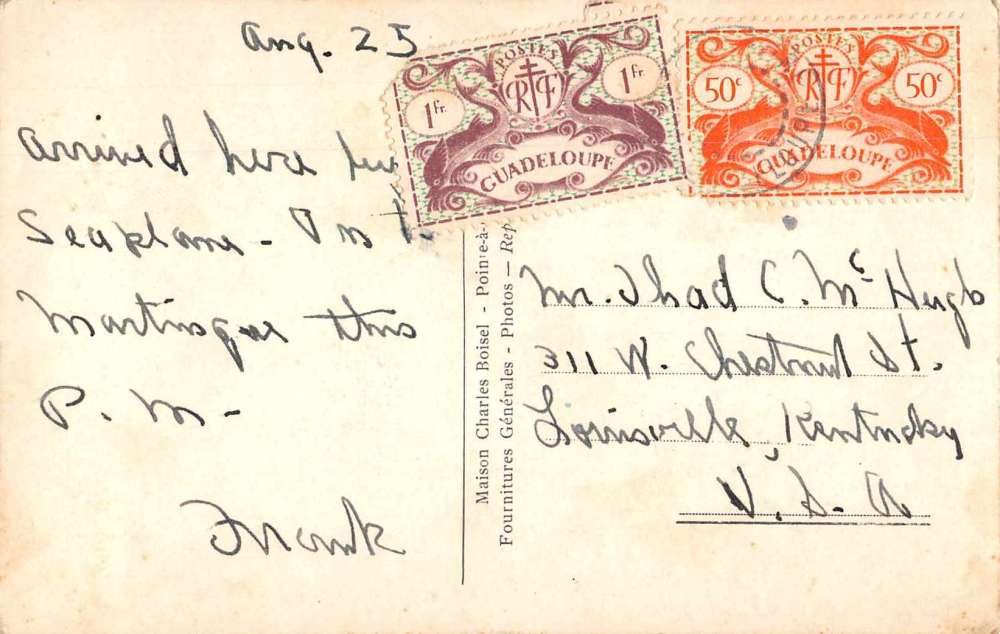 Aug. 25
Arrived here
Seaplane -
Martinique this
P. M. -
Frank
POSTES
RF
1 Fr.
1 Fr.
GUADELOUPE
POSTES
RF
50c
50c
GUADELOUPE
Maison Charles Boisel - Pointe-à-
Fournitures Générales - Photos — Rep
Mr. Thad C. Mc Hugh
311 W. Chestnut St.
Louisville, Kentucky
U. S. A